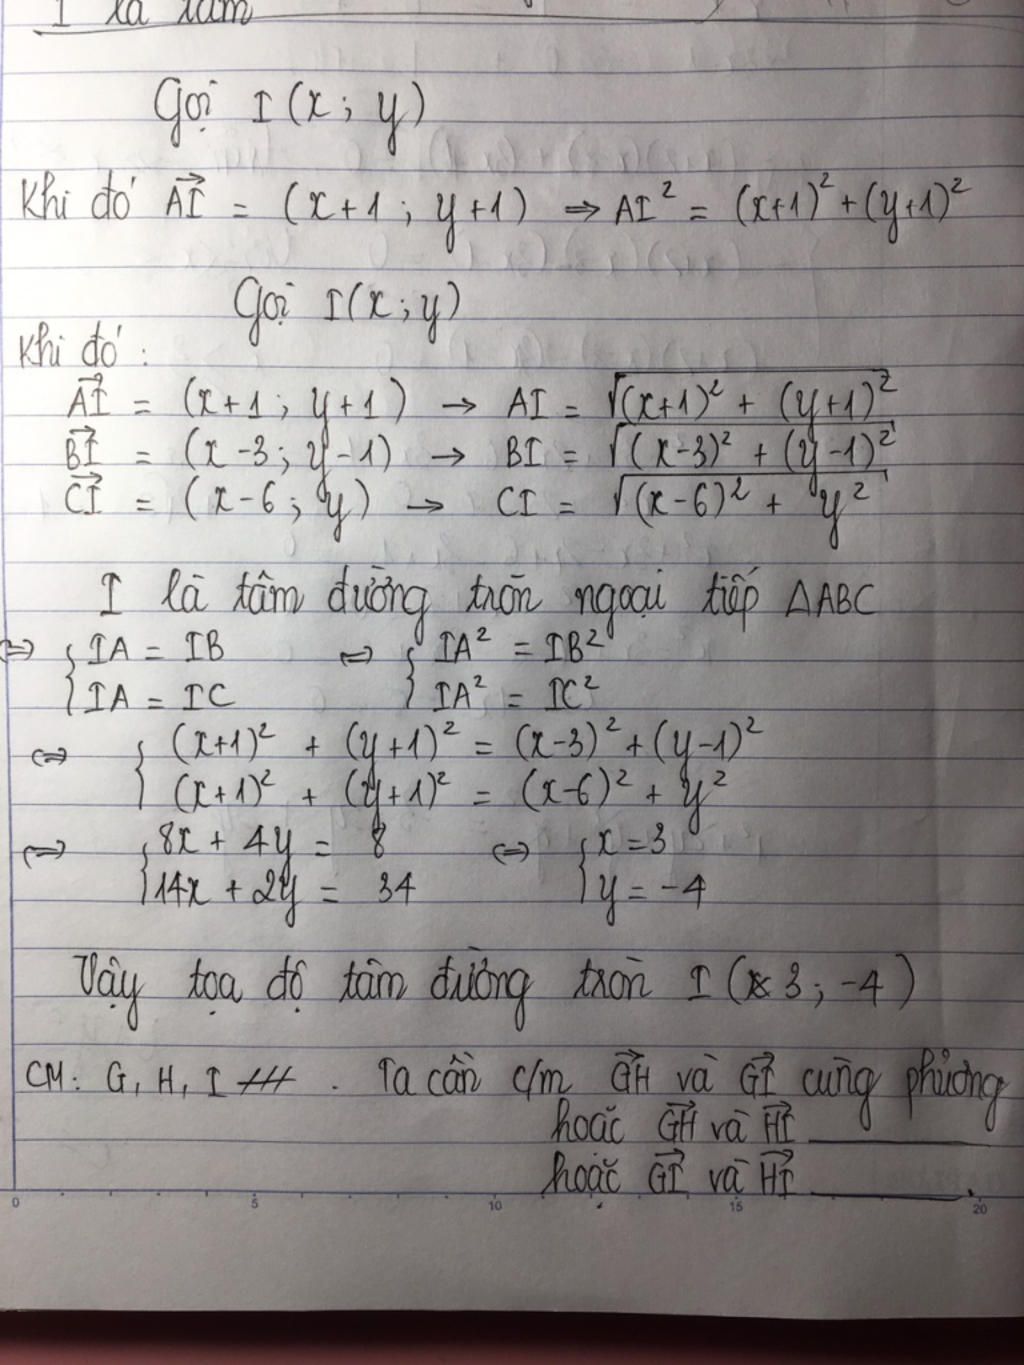 I là tâm
Gọi I(x; y)
Khi đó AI⃗ = (x+1; y+1) ⇒ AI² = (x+1)² + (y+1)²
Gọi I(x; y)
Khi đó:
AI⃗ = (x+1; y+1) → AI = √((x+1)² + (y+1)²)
BI⃗ = (x-3; y-1) → BI = √((x-3)² + (y-1)²)
CI⃗ = (x-6; y) → CI = √((x-6)² + y²)
I là tâm đường tròn ngoại tiếp ΔABC
⇔ { IA = IB ⇔ { IA² = IB²
{ IA = IC { IA² = IC²
⇔ { (x+1)² + (y+1)² = (x-3)² + (y-1)²
{ (x+1)² + (y+1)² = (x-6)² + y²
⇔ { 8x + 4y = 8 ⇔ { x = 3
{ 14x + 2y = 34 { y = -4
Vậy tọa độ tâm đường tròn I (3; -4)
CM: G, H, I thẳng hàng. Ta cần c/m GH⃗ và GI⃗ cùng phương
hoặc GH⃗ và HI⃗ ________
hoặc GI⃗ và HI⃗ ________.
0 5 10 15 20